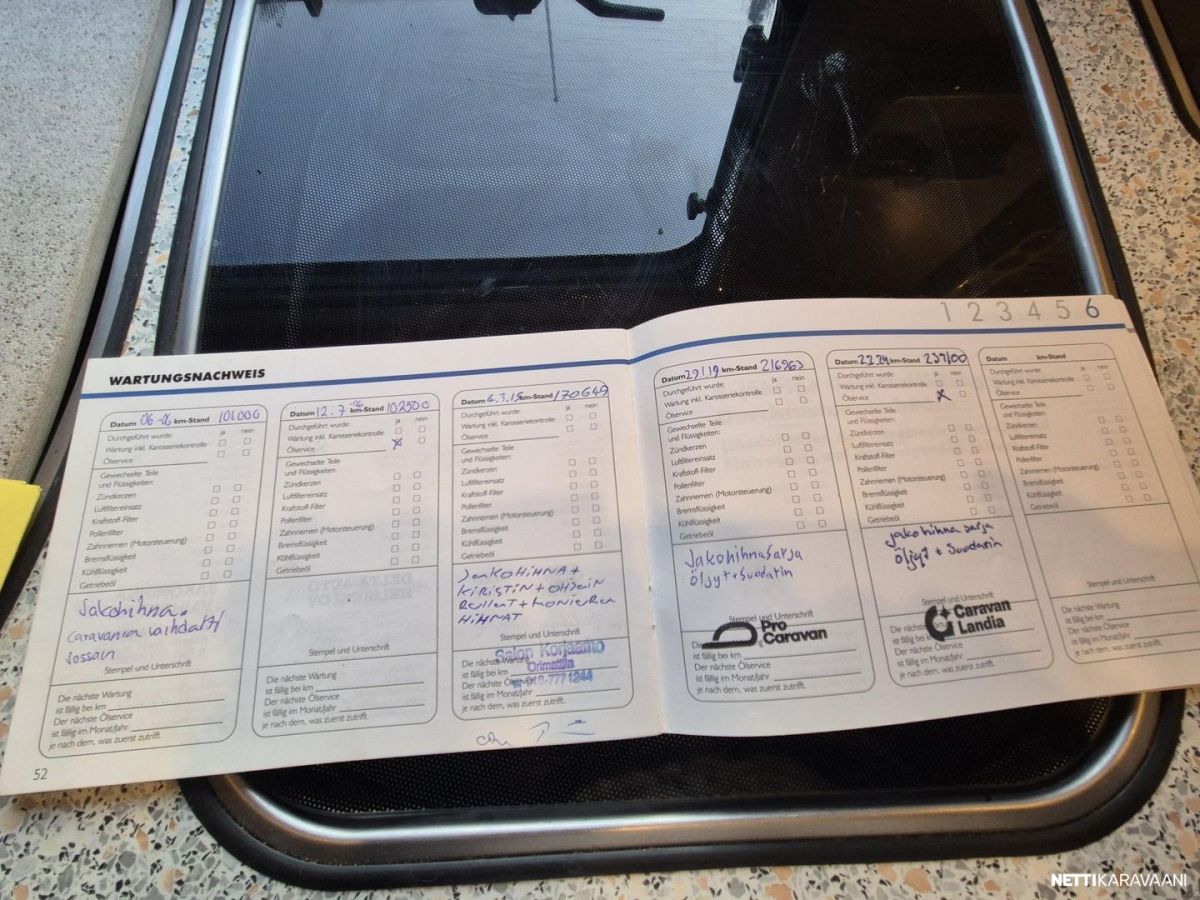 1 2 3 4 5 6
WARTUNGSNACHWEIS
Datum 06-06 km-Stand 101000
Durchgeführt wurde: ja nein
Wartung inkl. Karosseriekontrolle
Ölservice
Gewechselte Teile
und Flüssigkeiten:
Zündkerzen
Luftfiltereinsatz
Kraftstoff-Filter
Pollenfilter
Zahnriemen (Motorsteuerung)
Bremsflüssigkeit
Kühlflüssigkeit
Getriebeöl
Jakohihna.
Caravanra vaihdatt/
Jossain
Stempel und Unterschrift
Die nächste Wartung
ist fällig bei km
Der nächste Ölservice
ist fällig im Monat/Jahr
je nach dem, was zuerst zutrifft.
52
Datum 12.7-06 km-Stand 102500
Durchgeführt wurde: ja nein
Wartung inkl. Karosseriekontrolle
Ölservice x
Gewechselte Teile
und Flüssigkeiten:
Zündkerzen
Luftfiltereinsatz
Kraftstoff-Filter
Pollenfilter
Zahnriemen (Motorsteuerung)
Bremsflüssigkeit
Kühlflüssigkeit
Getriebeöl
Stempel und Unterschrift
Die nächste Wartung
ist fällig bei km
Der nächste Ölservice
ist fällig im Monat/Jahr
je nach dem, was zuerst zutrifft.
Datum 4.3.15 km-Stand 170649
Durchgeführt wurde: ja nein
Wartung inkl. Karosseriekontrolle
Ölservice
Gewechselte Teile
und Flüssigkeiten:
Zündkerzen
Luftfiltereinsatz
Kraftstoff-Filter
Pollenfilter
Zahnriemen (Motorsteuerung)
Bremsflüssigkeit
Kühlflüssigkeit
Getriebeöl
JAKOHIHNA +
KIRISTIN + OHJAIN
RULLAT + MONIURA
HIHNAT
Stempel und Unterschrift
Salon Korjaamo
Orimattila
018-7771244
Die nächste Wartung
ist fällig bei km
Der nächste Ölservice
ist fällig im Monat/Jahr
je nach dem, was zuerst zutrifft.
Datum 29.1.19 km-Stand 216963
Durchgeführt wurde: ja nein
Wartung inkl. Karosseriekontrolle
Ölservice
Gewechselte Teile
und Flüssigkeiten:
Zündkerzen
Luftfiltereinsatz
Kraftstoff-Filter
Pollenfilter
Zahnriemen (Motorsteuerung)
Bremsflüssigkeit
Kühlflüssigkeit
Getriebeöl
Jakohihnasarja
Öljyt + Suodatin
Stempel und Unterschrift
Pro
Caravan
Die nächste Wartung
ist fällig bei km
Der nächste Ölservice
ist fällig im Monat/Jahr
je nach dem, was zuerst zutrifft.
Datum 2.2.24 km-Stand 239100
Durchgeführt wurde: ja nein
Wartung inkl. Karosseriekontrolle
Ölservice x
Gewechselte Teile
und Flüssigkeiten:
Zündkerzen
Luftfiltereinsatz
Kraftstoff-Filter
Pollenfilter
Zahnriemen (Motorsteuerung)
Bremsflüssigkeit
Kühlflüssigkeit
Getriebeöl
Jakohihna sarja
Öljyt + Suodatin
Stempel und Unterschrift
Caravan
Landia
Die nächste Wartung
ist fällig bei km
Der nächste Ölservice
ist fällig im Monat/Jahr
je nach dem, was zuerst zutrifft.
Datum km-Stand
Durchgeführt wurde: ja nein
Wartung inkl. Karosseriekontrolle
Ölservice
Gewechselte Teile
und Flüssigkeiten:
Zündkerzen
Luftfiltereinsatz
Kraftstoff-Filter
Pollenfilter
Zahnriemen (Motorsteuerung)
Bremsflüssigkeit
Kühlflüssigkeit
Getriebeöl
Stempel und Unterschrift
Die nächste Wartung
ist fällig bei km
Der nächste Ölservice
ist fällig im Monat/Jahr
je nach dem, was zuerst zutrifft.
NETTIKARAVAANI